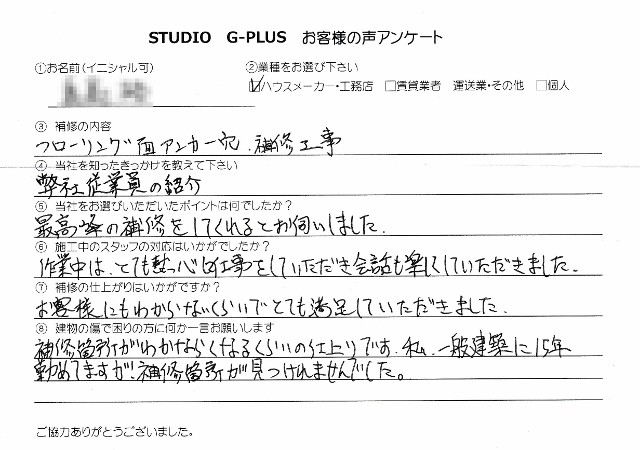 STUDIO G-PLUS お客様の声アンケート
①お名前(イニシャル可)
②業種をお選び下さい
☑ハウスメーカー・工務店 □賃貸業者 運送業・その他 □個人
③ 補修の内容
フローリング面アンカー穴、補修工事
④ 当社を知ったきっかけを教えて下さい
弊社従業員の紹介
⑤ 当社をお選びいただいたポイントは何でしたか?
最高峰の補修をしてくれるとお伺いしました。
⑥ 施工中のスタッフの対応はいかがでしたか?
作業中は、とても熱心に仕事をしていただき会話も楽しくしていただきました。
⑦ 補修の仕上がりはいかがですか?
お客様にもわからないくらいでとても満足していただきました。
⑧ 建物の傷で困りの方に何か一言お願いします
補修箇所がわからなくなるくらいの仕上りです。私、一般建築に15年
勤めてますが、補修箇所が見つけれませんでした。
ご協力ありがとうございました。